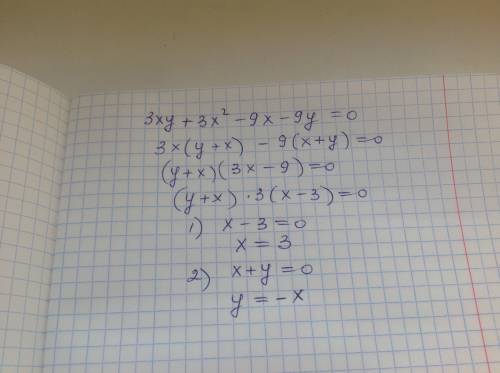 3xy + 3x² - 9x - 9y = 0
3x(y + x) - 9(x + y) = 0
(y + x)(3x - 9) = 0
(y + x) · 3(x - 3) = 0
1) x - 3 = 0
x = 3
2) x + y = 0
y = - x